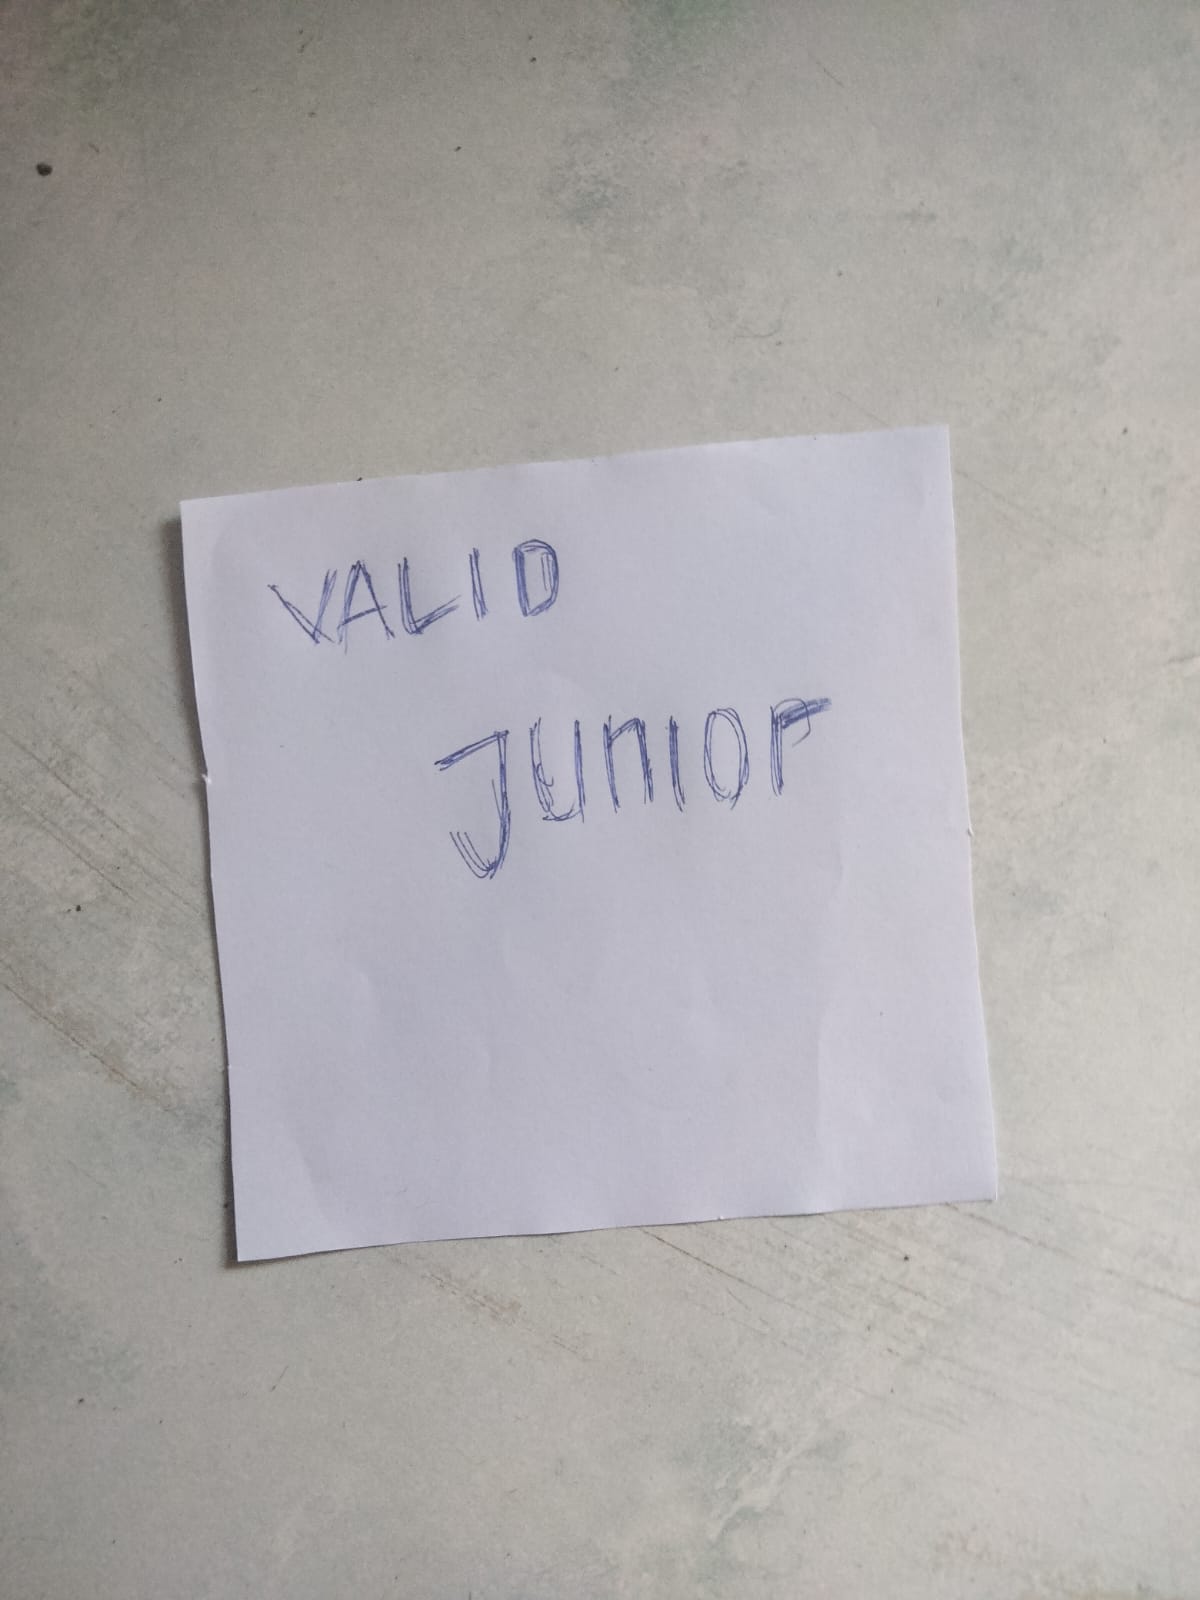 VALID
JUNIOR